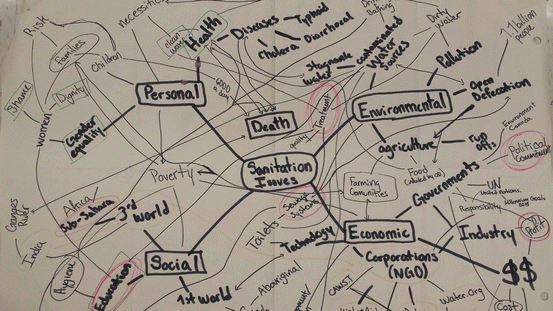 necessities
Risk
Health
Diseases
Typhoid
Cholera
Diarrhoeal
Bathing
Dirty
Water
1 billion
people
Families
Children
clean
water
Stagnate
Water
contaminated
Water
Sources
Pollution
Shame
Dignity
Personal
6000
a day
Death
Treatment
Environmental
Open
Defecation
women
Gender
equality
quality
agriculture
run
offs
Environment
Canada
Political
Commitment
Poverty
Sanitation
Issues
Food
Farming
Comunities
Governments
UN
United nations
Africa
Sub-Sahara
3rd World
Sewage
Systems
Responsibility
Millennium Goals
Ganges
River
Toilets
Technology
Economic
Industry
Profit
India
Hygiene
Social
Corporations
(NGO)
$$
Education
1st World
Aboriginal
CAWST
Water.Org
Cost